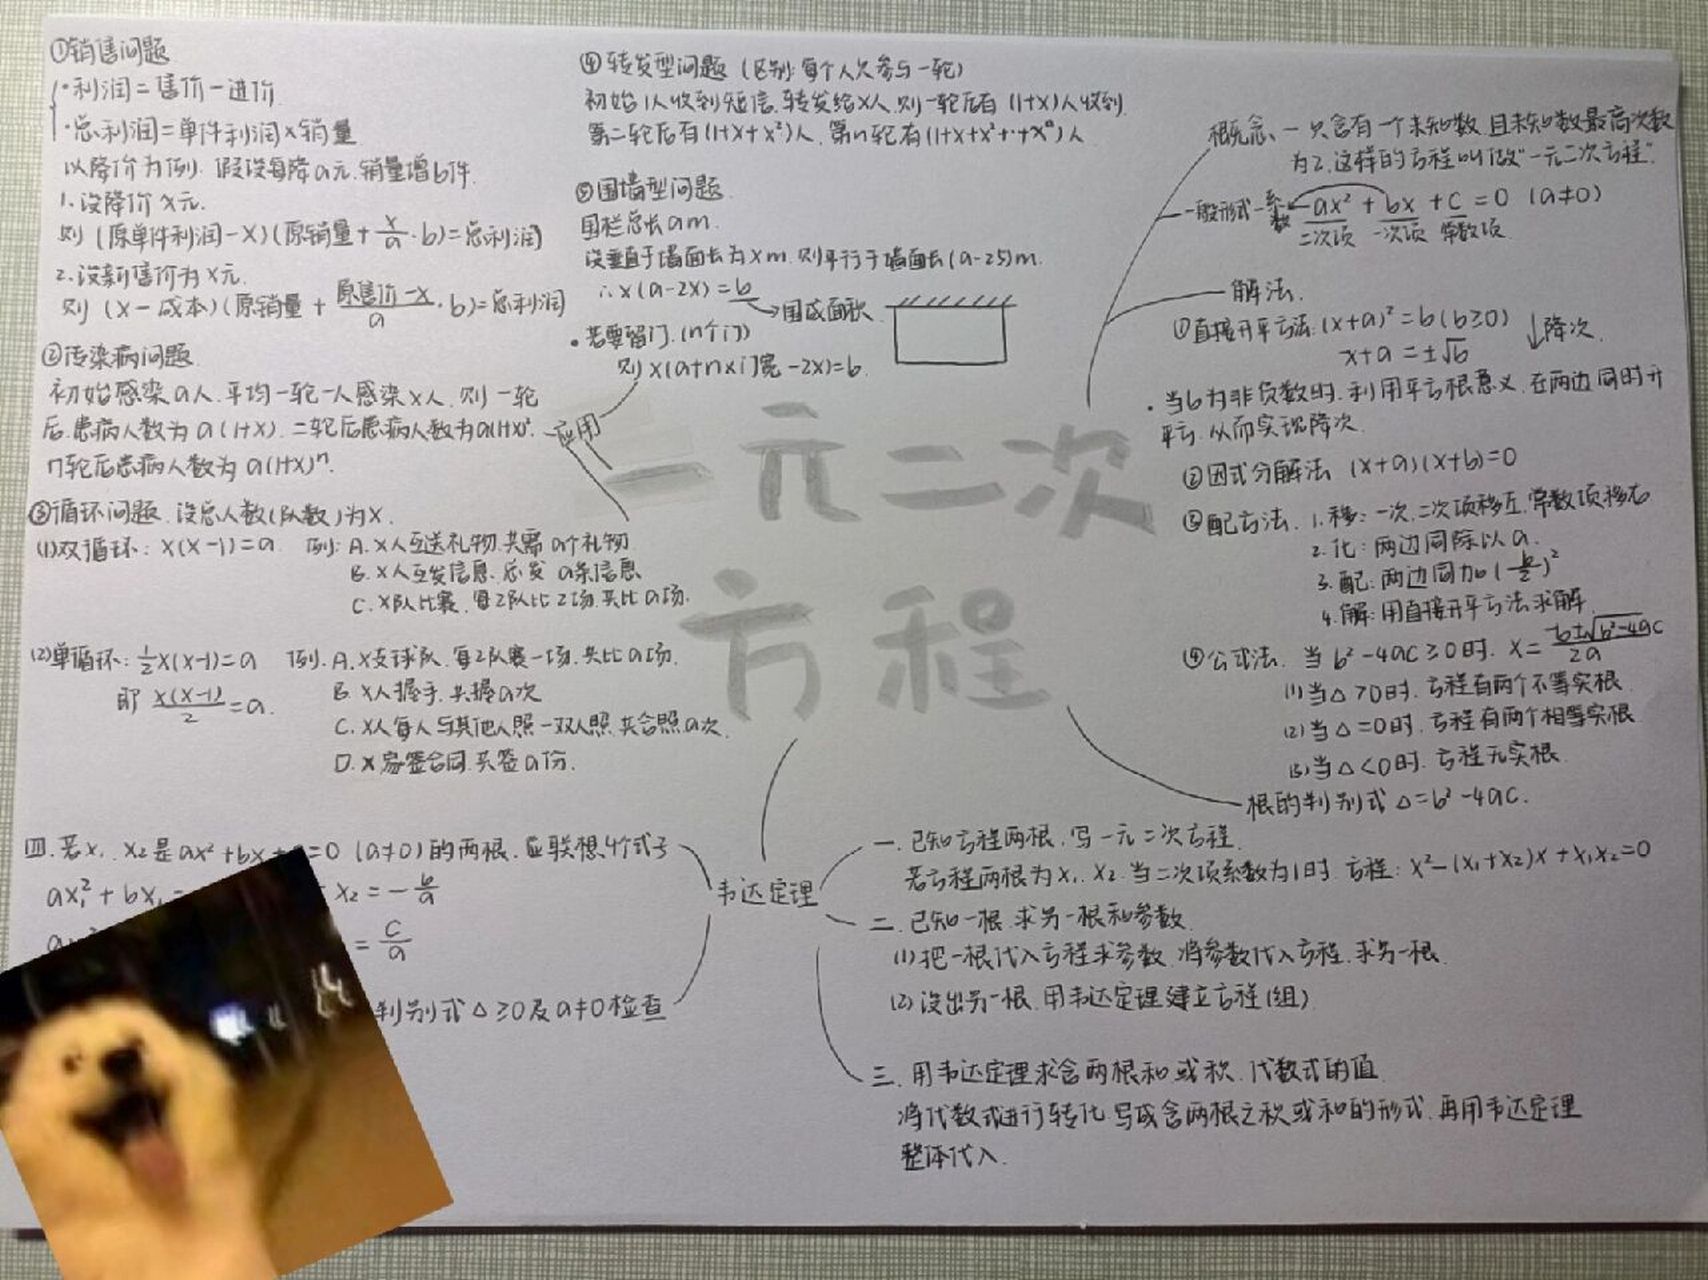 ①销售问题
·利润=售价-进价
·总利润=单件利润×销量
以降价为例.假设每降a元.销量增b件.
1.设降价x元.
则(原单件利润-x)(原销量+x/a·b)=总利润
2.设新售价为x元.
则(x-成本)(原销量+原售价-x/a·b)=总利润
②传染病问题.
初始感染a人.平均一轮一人感染x人.则一轮
后.患病人数为a(1+x).二轮后患病人数为a(1+x)².
n轮后患病人数为a(1+x)ⁿ.
③循环问题.设总人数(队数)为x.
(1)双循环:x(x-1)=a. 例:A.x人互送礼物.共需a个礼物.
B.x人互发信息.总发a条信息.
C.x队比赛.每2队比2场.共比a场.
(2)单循环:½x(x-1)=a 例.A.x支球队.每2队赛一场.共比a场.
即x(x-1)/2=a. B.x人握手.共握a次
C.x人每人与其他人照一双人照.共合照a次.
D.x家签合同.共签a份.
④转发型问题(区别:每个人只参与一轮)
初始1人收到短信.转发给x人.则一轮后有(1+x)人收到.
第二轮后有(1+x+x²)人.第n轮有(1+x+x²+··+xⁿ)人
⑤围墙型问题.
围栏总长am.
设垂直于墙面长为xm.则平行于墙面长(a-2x)m.
∴x(a-2x)=b
→围成面积.
·若要留门.(n个门)
则x(a+n×门宽-2x)=b.
应用
一元二次
方程
概念.一只含有一个未知数.且未知数最高次数
为2.这样的方程叫做"一元二次方程".
一般形式-系数 ax²+bx+c=0 (a≠0)
二次项 一次项 常数项.
解法.
①直接开平方法:(x+a)²=b(b≥0) ↓降次.
x+a=±√b
·当b为非负数时.利用平方根意义.在两边同时开
平方.从而实现降次.
②因式分解法 (x+a)(x+b)=0
③配方法.1.移:一次.二次项移左.常数项移右
2.化:两边同除以a.
3.配:两边同加(b/2)²
4.解:用直接开平方法求解.
④公式法.当b²-4ac≥0时.x=-b±√b²-4ac/2a
(1)当△>0时.方程有两个不等实根.
(2)当△=0时.方程有两个相等实根.
(3)当△<0时.方程无实根.
根的判别式△=b²-4ac.
韦达定理
一.已知方程两根.写一元二次方程.
若方程两根为x₁.x₂.当二次项系数为1时.方程:x²-(x₁+x₂)x+x₁x₂=0
二.已知一根.求另一根和参数.
(1)把一根代入方程求参数.将参数代入方程.求另一根.
(2)设出另一根.用韦达定理建立方程(组).
三.用韦达定理求含两根和或积.代数式的值.
将代数式进行转化.写成含两根之积或和的形式.再用韦达定理
整体代入.
四.若x₁.x₂是ax²+bx+ =0 (a≠0)的两根.应联想4个式子
ax₁²+bx₁ x₂=-b/a
=c/a
判别式△≥0及a≠0检查